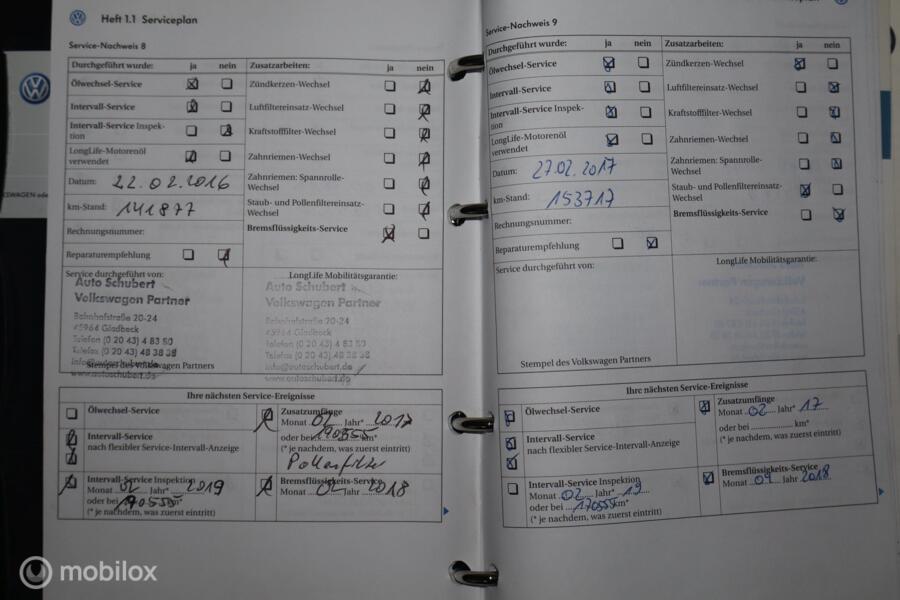 Heft 1.1 Serviceplan
Service-Nachweis 8
Durchgeführt wurde: ja nein
Ölwechsel-Service
Intervall-Service
Intervall-Service Inspek-
tion
LongLife-Motorenöl
verwendet
Datum: 22.02.2016
km-Stand: 141877
Rechnungsnummer:
Reparaturempfehlung
Zusatzarbeiten: ja nein
Zündkerzen-Wechsel
Luftfiltereinsatz-Wechsel
Kraftstofffilter-Wechsel
Zahnriemen-Wechsel
Zahnriemen: Spannrolle-
Wechsel
Staub- und Pollenfiltereinsatz-
Wechsel
Bremsflüssigkeits-Service
Service durchgeführt von:
Auto Schubert
Volkswagen Partner
Bahnhofstraße 20-24
45964 Gladbeck
Telefon (0 20 43) 4 83 50
Telefax (0 20 43) 48 38 38
info@autoschubert.de
www.autoschubert.de
Stempel des Volkswagen Partners
LongLife Mobilitätsgarantie:
Auto Schubert
Volkswagen Partner
Bahnhofstraße 20-24
45964 Gladbeck
Telefon (0 20 43) 4 83 50
Telefax (0 20 43) 48 38 38
info@autoschubert.de
www.autoschubert.de
Ihre nächsten Service-Ereignisse
Ölwechsel-Service
Intervall-Service
nach flexibler Service-Intervall-Anzeige
Intervall-Service Inspektion
Monat 02 Jahr* 2019
oder bei 170555 km*
(* je nachdem, was zuerst eintritt)
Zusatzumfänge
Monat 02 Jahr* 2017
oder bei km*
(* je nachdem, was zuerst eintritt)
Pollenfilter
Bremsflüssigkeits-Service
Monat 02 Jahr 2018
Service-Nachweis 9
Durchgeführt wurde: ja nein
Ölwechsel-Service
Intervall-Service
Intervall-Service Inspek-
tion
LongLife-Motorenöl
verwendet
Datum: 27.02.2017
km-Stand: 153717
Rechnungsnummer:
Reparaturempfehlung
Zusatzarbeiten: ja nein
Zündkerzen-Wechsel
Luftfiltereinsatz-Wechsel
Kraftstofffilter-Wechsel
Zahnriemen-Wechsel
Zahnriemen: Spannrolle-
Wechsel
Staub- und Pollenfiltereinsatz-
Wechsel
Bremsflüssigkeits-Service
Service durchgeführt von:
Stempel des Volkswagen Partners
LongLife Mobilitätsgarantie:
Ihre nächsten Service-Ereignisse
Ölwechsel-Service
Intervall-Service
nach flexibler Service-Intervall-Anzeige
Intervall-Service Inspektion
Monat 02 Jahr* 19
oder bei 170555 km*
(* je nachdem, was zuerst eintritt)
Zusatzumfänge
Monat 02 Jahr* 17
oder bei km*
(* je nachdem, was zuerst eintritt)
Bremsflüssigkeits-Service
Monat Jahr 2018
mobilox